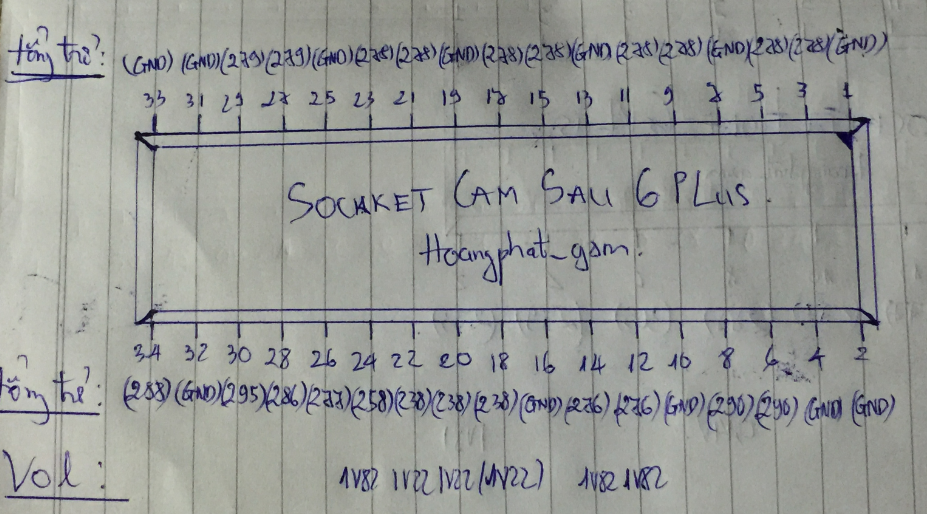 tổng trở: (GND) (GND)(279)(279)(GND)(278)(278)(GND)(278)(278)(GND)(278)(278)(GND)(278)(278)(GND)
33 31 29 27 25 23 21 19 17 15 13 11 9 7 5 3 1
SOCKET CAM SAU 6 PLUS.
Hoangphat_gsm.
34 32 30 28 26 24 22 20 18 16 14 12 10 8 6 4 2
tổng trở: (288)(GND)(295)(286)(277)(258)(238)(238)(238)(GND)(276)(276)(GND)(290)(290)(GND)(GND)
Vol: 1V82 1V22 1V22 (1V22) 1V82 1V82